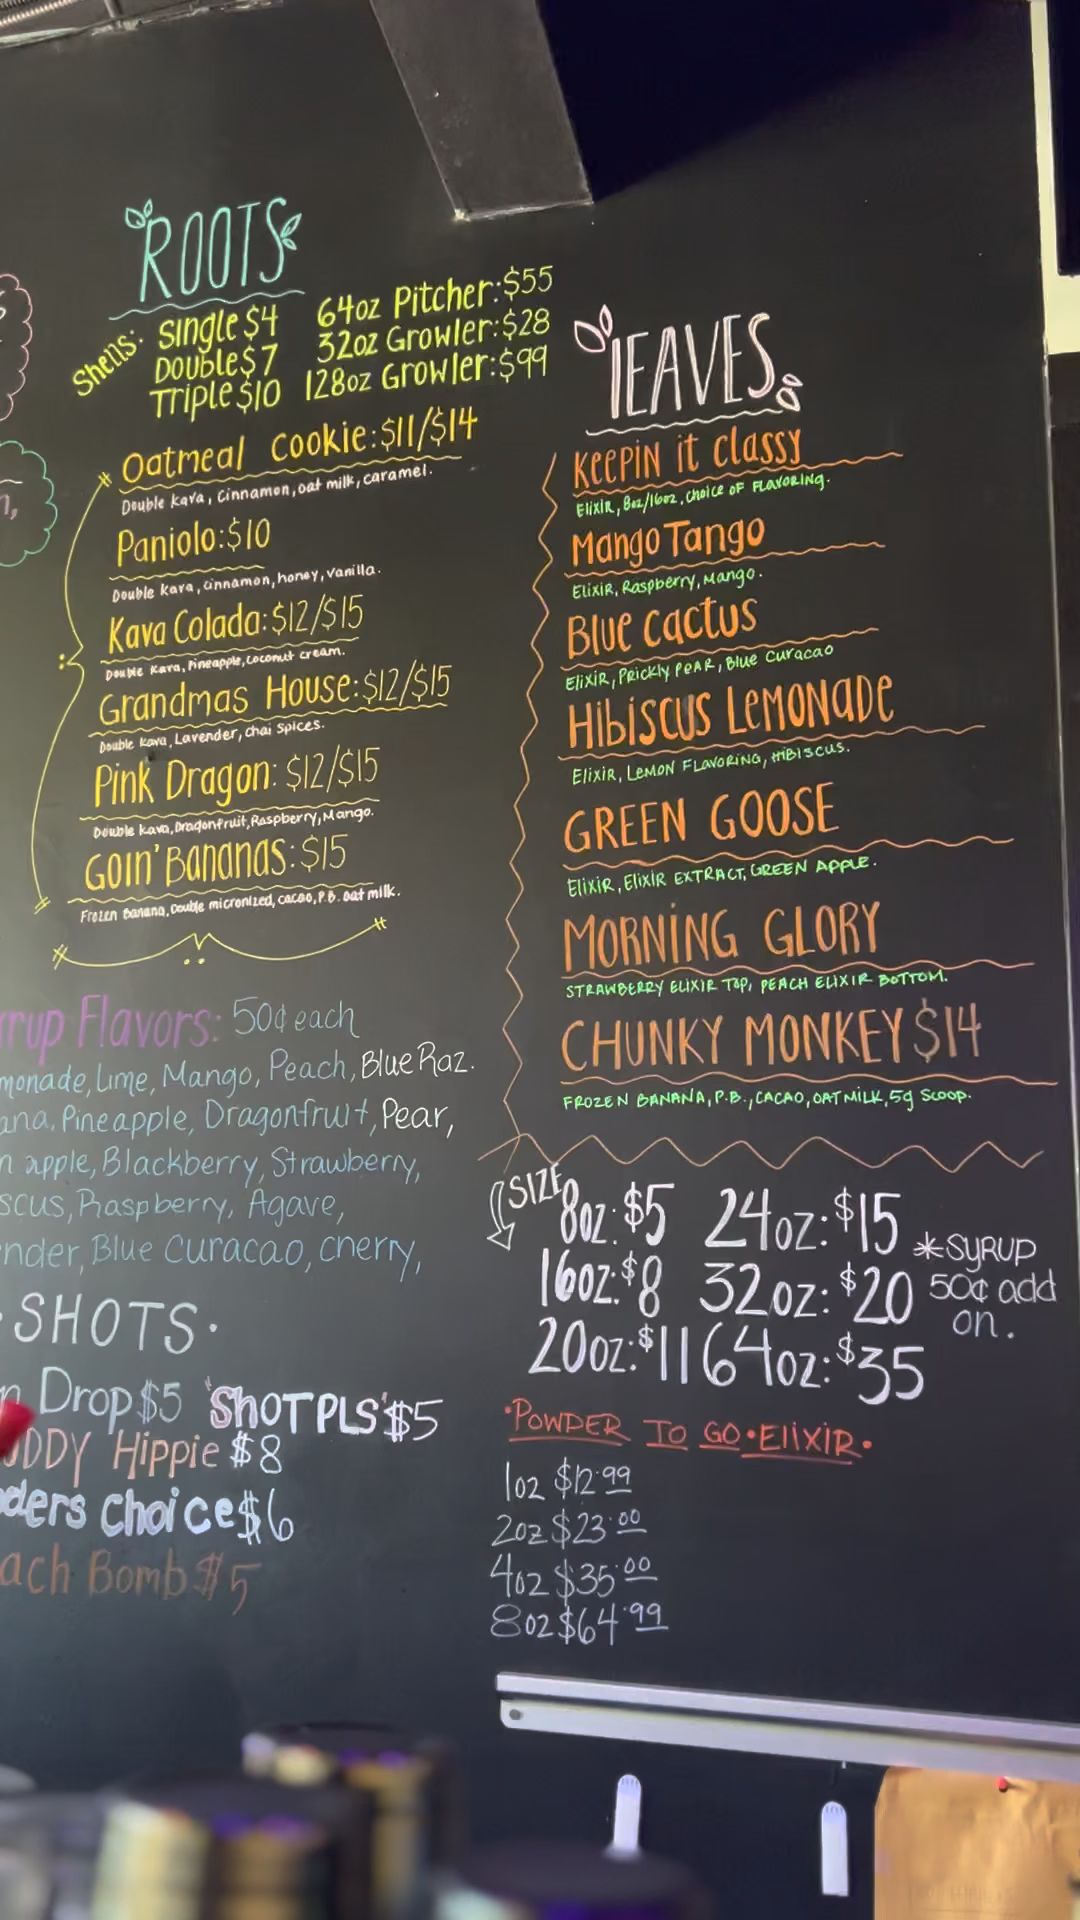 ROOTS
Shells: Single $4
Double $7
Triple $10
64oz Pitcher: $55
32oz Growler: $28
128oz Growler: $99
Oatmeal Cookie: $11/$14
Double Kava, Cinnamon, oat milk, caramel.
Paniolo: $10
Double Kava, cinnamon, honey, vanilla.
Kava Colada: $12/$15
Double Kava, Pineapple, coconut cream.
Grandmas House: $12/$15
Double Kava, Lavender, chai spices.
Pink Dragon: $12/$15
Double Kava, Dragonfruit, Raspberry, Mango.
Goin' Bananas: $15
Frozen Banana, Double micronized, cacao, P.B. oat milk.
rup Flavors: 50¢ each
monade, Lime, Mango, Peach, Blue Raz.
ana, Pineapple, Dragonfruit, Pear,
n apple, Blackberry, Strawberry,
scus, Raspberry, Agave,
nder, Blue Curacao, cherry,
SHOTS.
n Drop $5 'SHOT PLS' $5
DDY Hippie $8
ders Choice $6
ach Bomb $5
LEAVES
Keepin it classy
Elixir, 8oz/16oz, choice of flavoring.
Mango Tango
Elixir, Raspberry, Mango.
Blue cactus
Elixir, Prickly Pear, Blue Curacao
Hibiscus Lemonade
Elixir, Lemon Flavoring, Hibiscus.
GREEN GOOSE
Elixir, Elixir Extract, Green Apple.
MORNING GLORY
STRAWBERRY ELIXIR TOP, PEACH ELIXIR BOTTOM.
CHUNKY MONKEY $14
FROZEN BANANA, P.B., CACAO, OAT MILK, 5g SCOOP.
SIZE
8oz: $5 24oz: $15
16oz: $8 32oz: $20
20oz: $11 64oz: $35
*SYRUP
50¢ add
on.
•POWDER TO GO•Elixir•
1oz $12.99
2oz $23.00
4oz $35.00
8oz $64.99